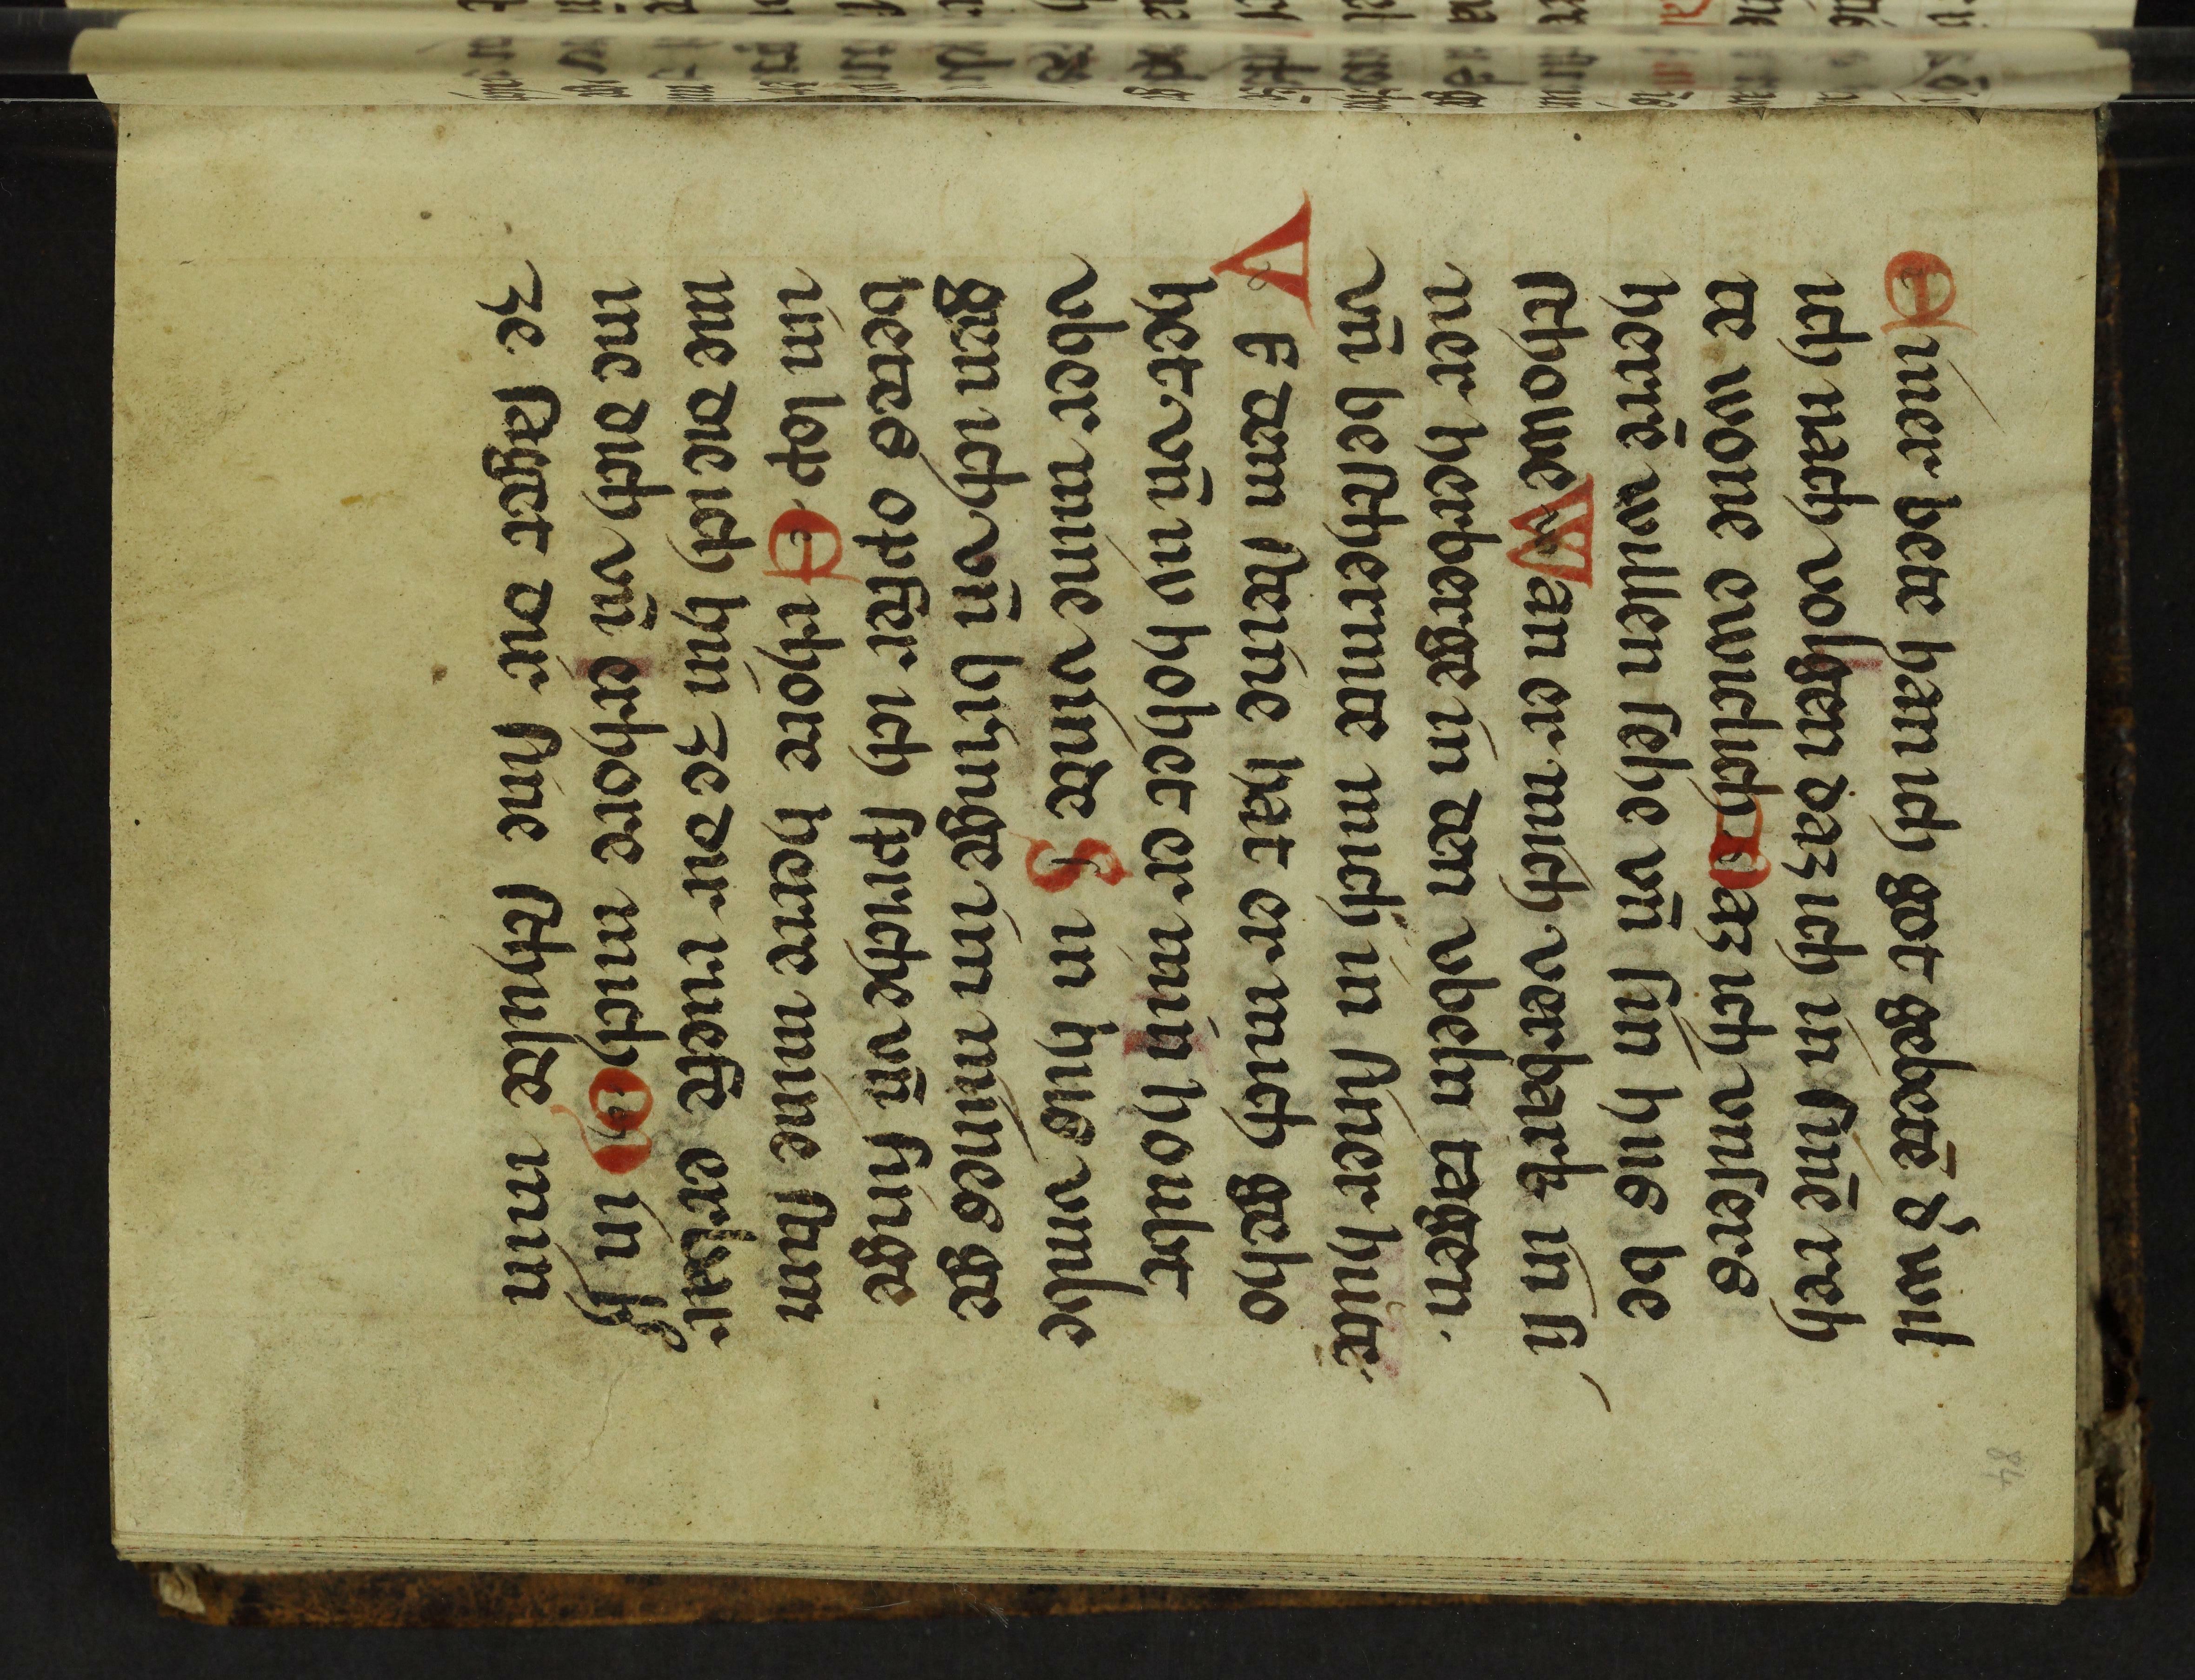 Einer bete han ich got gebetē d' wil
ich nach volgen daz ich in sinē reh
te wone ewiclich Daz ich vnsers
herrē willen sehe vn̄ sin hus be
schowe Wan er mich verbarch in si
ner herberge in den vbelen tagen.
vn̄ beschermte mich in siner hute.
An dem steine hat er mich geho
het vn̄ nv hohet er min houbt
vber mine vinde Sin hus vmbe
gien ich vn̄ bringe im mines ge
betes opfer ich spriche vn̄ singe
im lop Erhore herre mine stim
me die ich hin ze dir rueffe erbar
me dich vn̄ erhore mich Min h'
ze saget dir sine schulde min
84